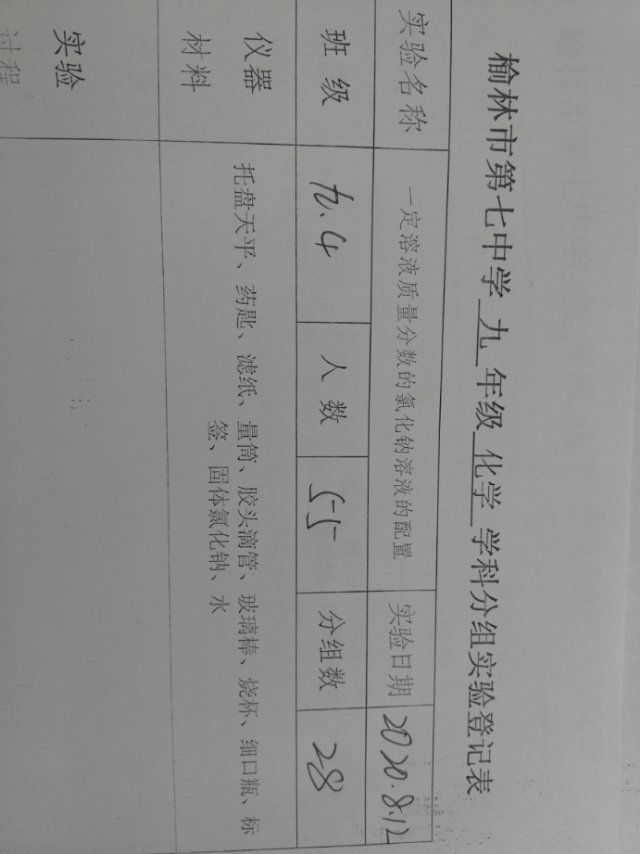 榆林市第七中学 九 年级 化学 学科分组实验登记表
实验名称 一定溶液质量分数的氯化钠溶液的配置 实验日期 2020.8.12
班级 九.4 人数 55 分组数 28
仪器
材料
托盘天平、药匙、滤纸、量筒、胶头滴管、玻璃棒、烧杯、细口瓶、标
签、固体氯化钠、水
实验
过程